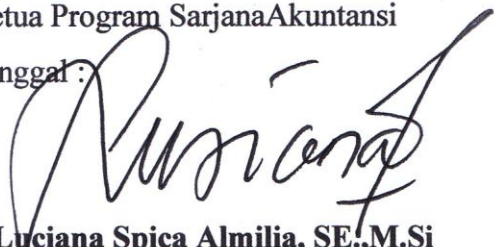 etua Program SarjanaAkuntansi
nggal :
Luciana
Luciana Spica Almilia, SE., M.Si